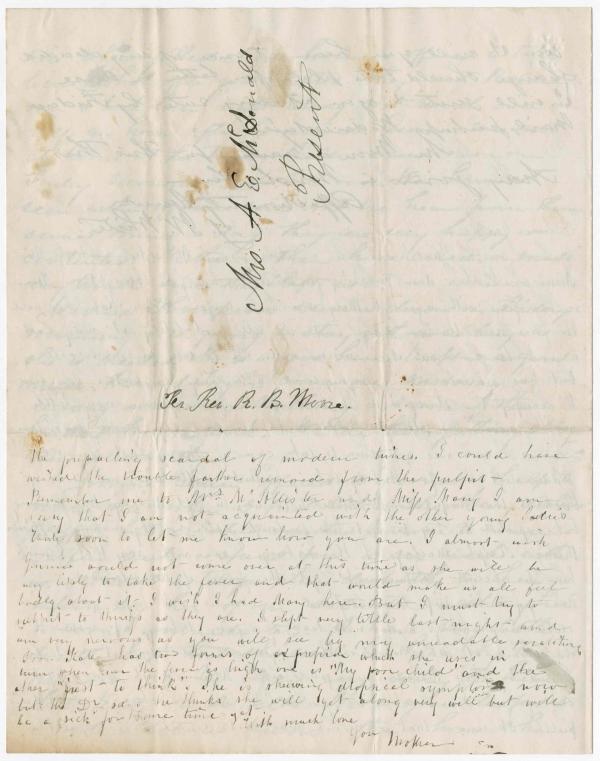 Mrs. A. E. McDonald
Present
Per Rev. R. B. Morse.
the preparating scandal of modern times. I could have
wished the trouble farther removed from the pulpit -
Remember me to Mrs. McAllister and Miss Mary I am
sorry that I am not acquainted with the other young ladies
Write soon to let me know how you are. I almost wish
Jennie would not come over at this time as she will be
very likely to take the fever and that would make us all feel
badly about it. I wish I had Mary here. But I must try to
submit to things as they are. I slept very little last night and
am very nervous as you will see by my unreadable scratching
Poor Kate has two forms of expression which she uses in
turn when the fever is high one is "My poor child" and the
other "Just to think". She is shewing dropsical symptoms now
but the Dr. says he thinks she will get along very well but will
be a sick for some time yet.
With much love
Your Mother